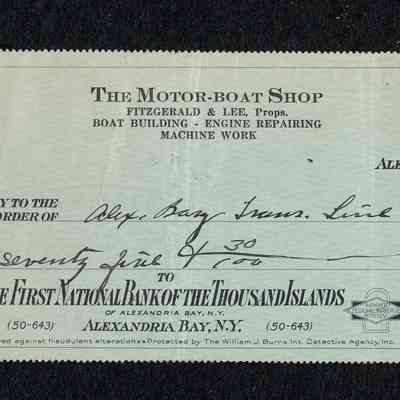 THE MOTOR-BOAT SHOP
FITZGERALD & LEE, Props.
BOAT BUILDING - ENGINE REPAIRING
MACHINE WORK
ALE
Y TO THE
ORDER OF Alex. Bay Trans. Line
Seventy five & 30/100
TO
E FIRST NATIONAL BANK OF THE THOUSAND ISLANDS
OF ALEXANDRIA BAY, N.Y.
(50-643) ALEXANDRIA BAY, N.Y. (50-643)
red against fraudulent alterations Protected by The William J. Burns Int. Detective Agency, Inc.